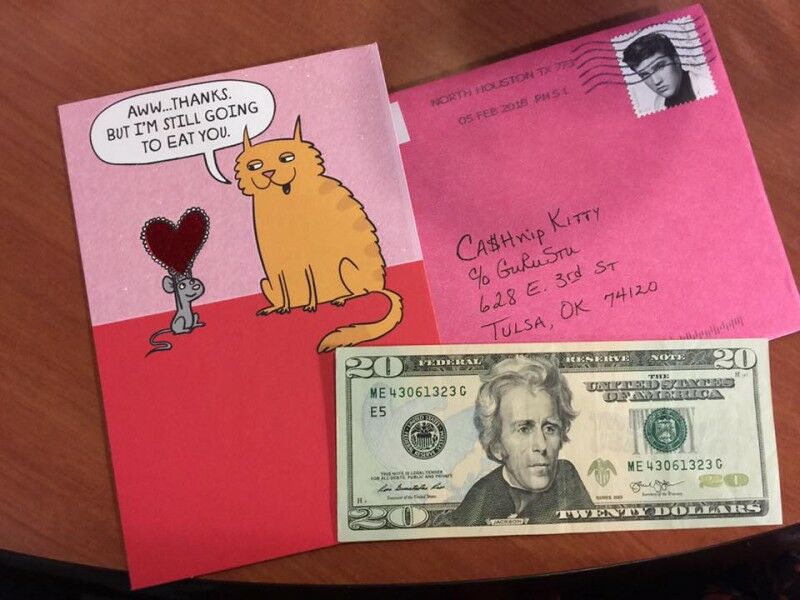 AWW...THANKS.
BUT I'M STILL GOING
TO EAT YOU.
NORTH HOUSTON TX 773
05 FEB 2018 PM 5 L
CA$HNIP KITTY
C/O GURUSTU
628 E. 3RD ST
TULSA, OK 74120
20 FEDERAL RESERVE NOTE 20
THE
UNITED STATES
OF AMERICA
ME 43061323 G
E5
THIS NOTE IS LEGAL TENDER
FOR ALL DEBTS, PUBLIC AND PRIVATE
ME 43061323 G
20
Treasurer of the United States
SERIES 2013
Secretary of the Treasury
JACKSON
20 TWENTY DOLLARS